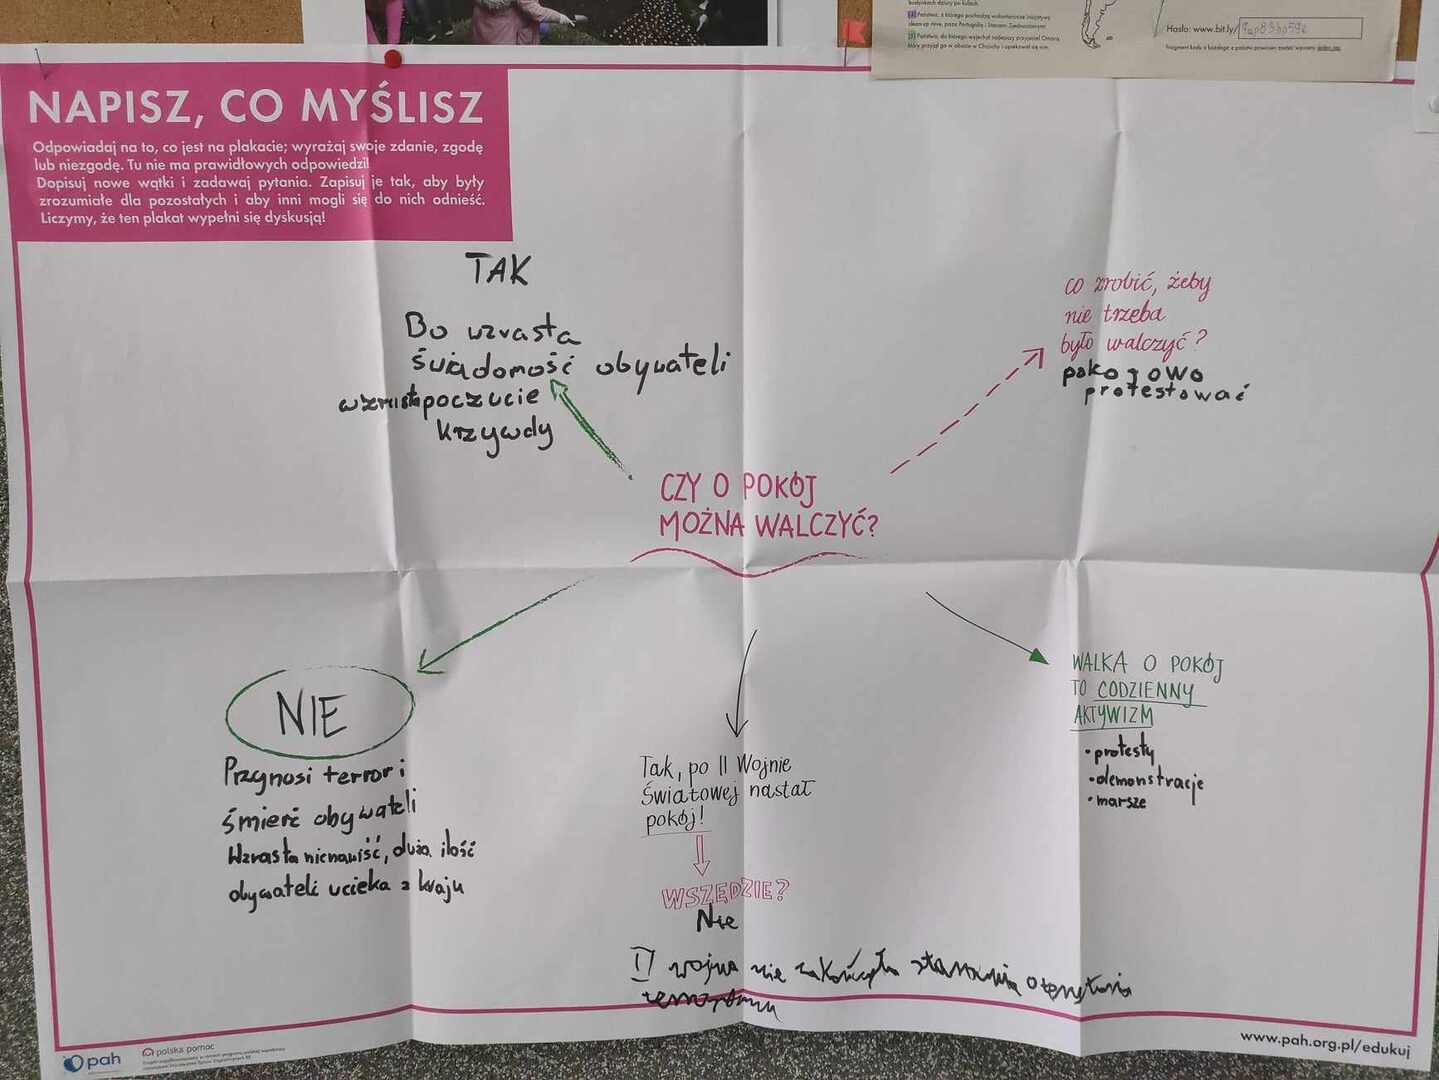 [A] Państwo, z którego pochodzą wolontariackie inicjatywy
Hasło: www.bit.ly/
NAPISZ, CO MYŚLISZ
Odpowiadaj na to, co jest na plakacie; wyrażaj swoje zdanie, zgodę
lub niezgodę. Tu nie ma prawidłowych odpowiedzi!
Dopisuj nowe wątki i zadawaj pytania. Zapisuj je tak, aby były
zrozumiałe dla pozostałych i aby inni mogli się do nich odnieść.
Liczymy, że ten plakat wypełni się dyskusją!
TAK
Bo wzrasta
świadomość obywateli
wzrasta poczucie
krzywdy
co zrobić, żeby
nie trzeba
było walczyć?
pokojowo
protestować
CZY O POKÓJ
MOŻNA WALCZYĆ?
NIE
Przynosi terror i
śmierć obywateli
Wzrasta nienawiść, duża ilość
obywateli ucieka z kraju
Tak, po II Wojnie
Światowej nastał
pokój!
WSZĘDZIE?
Nie
II wojna nie zakończyła
WALKA O POKÓJ
TO CODZIENNY
AKTYWIZM
• protesty
• demonstracje
• marsze
pah
polska pomoc
www.pah.org.pl/edukuj